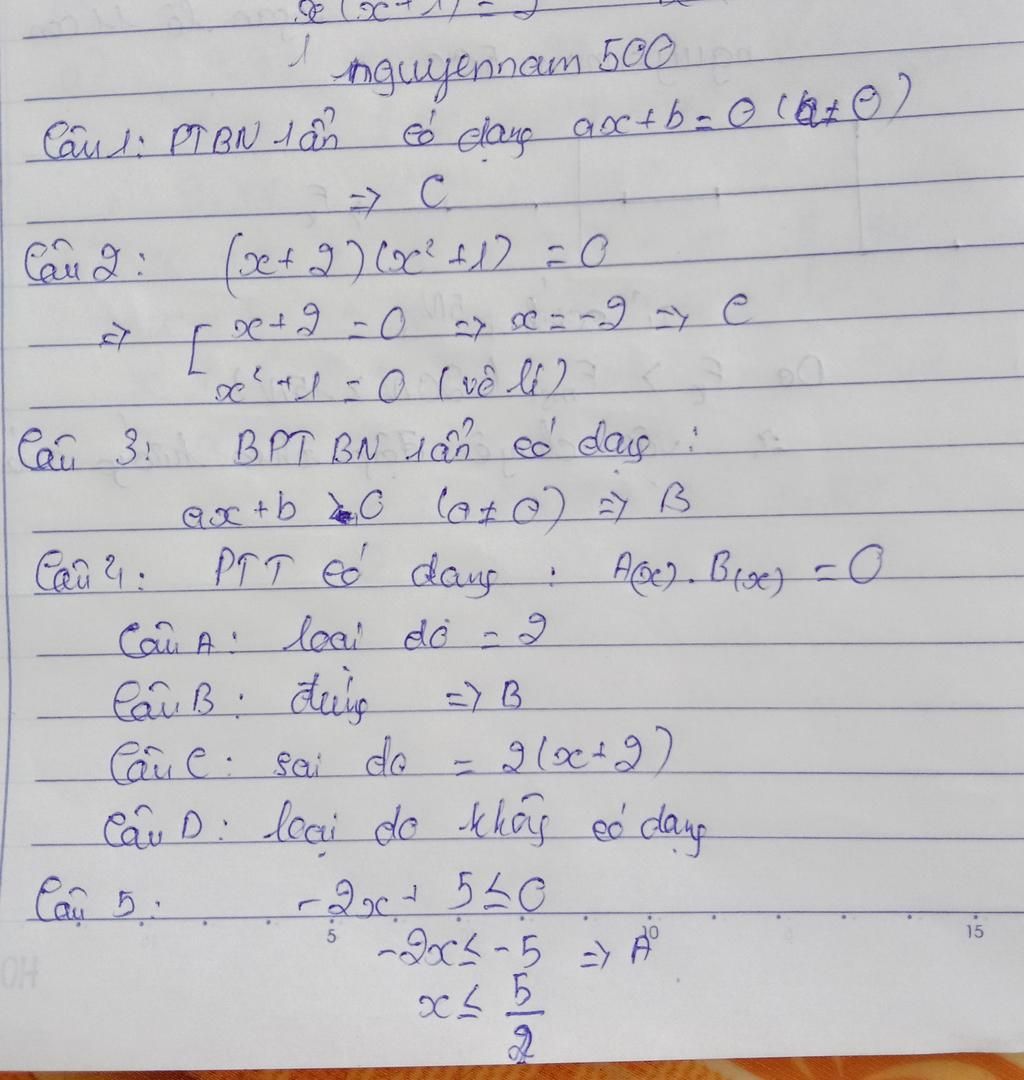 x(x+1) = 2
1 nguyennam 500
Câu 1: PTBN 1 ẩn có dạng ax+b=0 (a≠0)
=> C
Câu 2: (x+2)(x²+1) = 0
=> [ x+2 = 0 => x = -2 => C
x²+1 = 0 (vô lí)
Câu 3: BPTBN 1 ẩn có dạng :
ax+b > 0 (a≠0) => B
Câu 4: PTT có dạng : A(x).B(x) = 0
Câu A: loại do = 2
Câu B: đúng => B
Câu C: sai do = 2(x+2)
Câu D: loại do không có dạng
Câu 5: -2x+ 5≤0
5 10 15
-2x≤ -5 => A
x ≤ 5/2